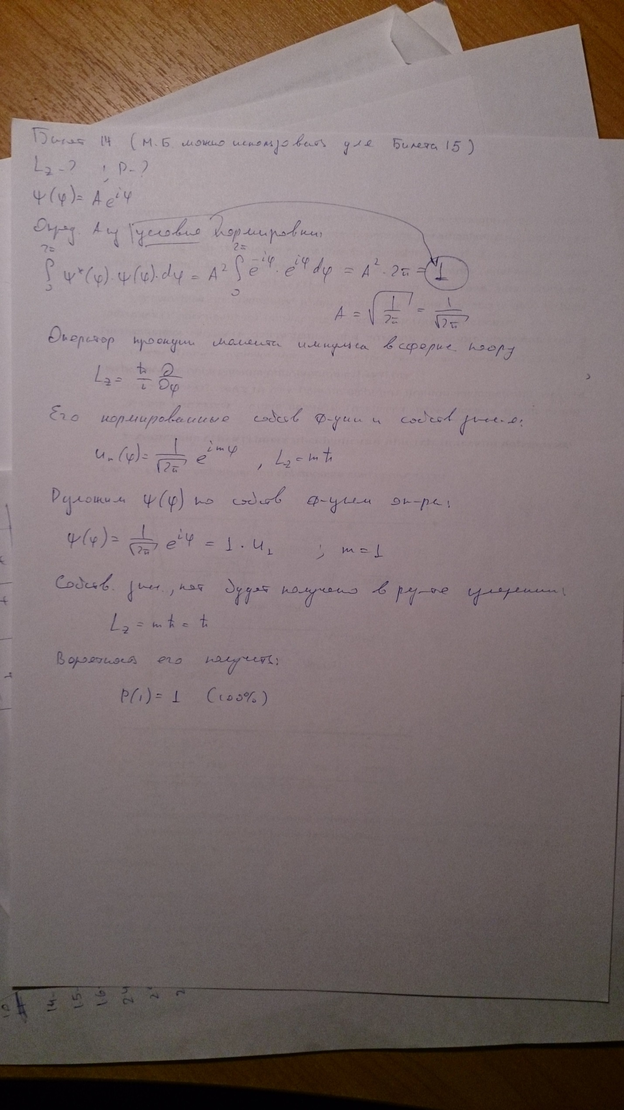 Билет 14 (М.Б. можно использовать для Билета 15)
L_z - ? ; P - ?
Ψ(φ) = A e^{iφ}
Опред. A из условия нормировки:
∫_0^{2π} Ψ*(φ)·Ψ(φ)·dφ = A² ∫_0^{2π} e^{-iφ}·e^{iφ} dφ = A²·2π = 1
A = √(1/2π) = 1/√(2π)
Оператор проекции момента импульса в сферич. коорд
L_z = ħ/i ∂/∂φ
Его нормированные собств ф-ции и собств знач-я:
u_m(φ) = 1/√(2π) e^{imφ} , L_z = mħ
Разложим Ψ(φ) по собств ф-циям оп-ра:
Ψ(φ) = 1/√(2π) e^{iφ} = 1·u_1 ; m = 1
Собств. знач, кот будет получено в рез-те измерения:
L_z = mħ = ħ
Вероятность его получить:
P(1) = 1 (100%)
14
15
16